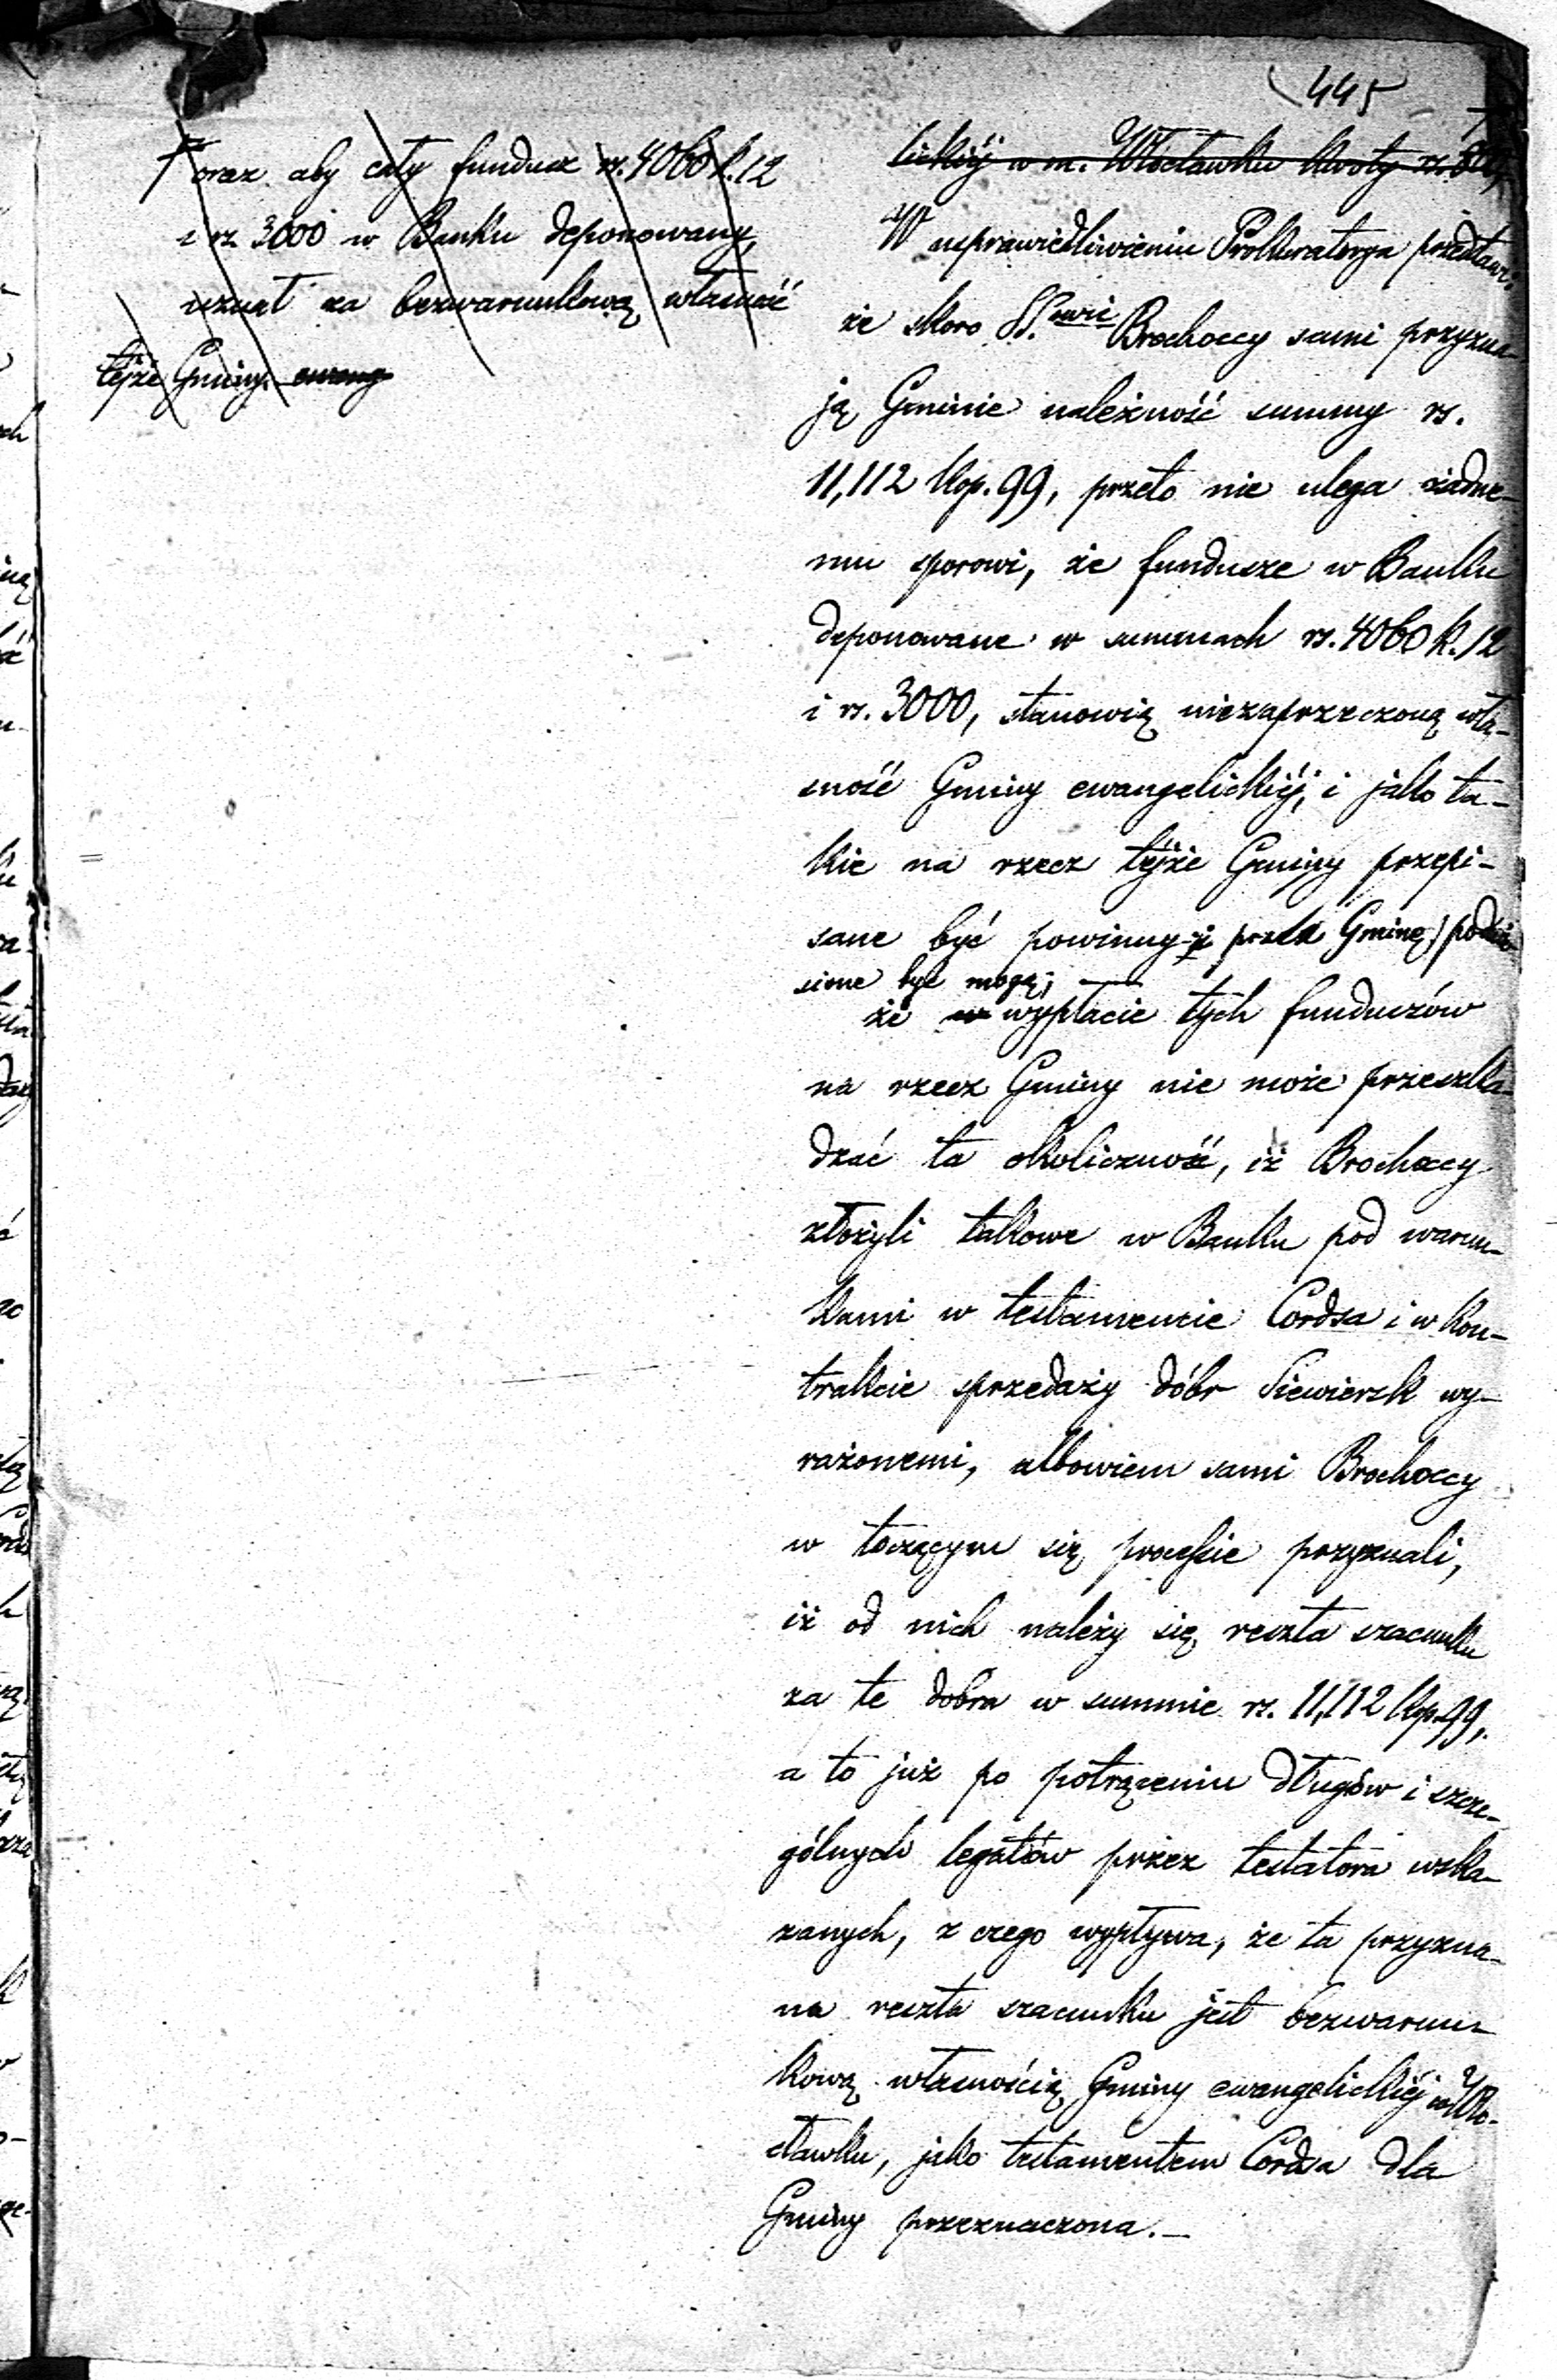 445
† oraz aby cały fundusz rs. 4060 k. 12
i rs 3000 w Banku deponowany,
uznał za bezwarunkową własność
tejże Gminy. ewang
lickiéj w m. Włocławku kwoty rs.
W usprawiedliwieniu Prokuratorya przedstawi
że skoro SS.owie Brochoccy sami przyzna-
ją Gminie należność summy rs.
11,112 kop. 99, przeto nie ulega żadne-
mu sporowi, że fundusze w Banku
deponowane w summach rs. 4060 k. 12
i rs. 3000, stanowią niezaprzeczoną wła-
sność Gminy ewangelickiéj, i jako ta-
kie na rzecz téjże Gminy przepi-
sane być powinny i przez Gminę podnie
sione być mogą;
że w wypłacie tych funduszów
na rzecz Gminy nie może przeszka-
dzać ta okoliczność, iż Brochoccy
złożyli takowe w Banku pod warun-
kami w testamencie Cordsa i w kon-
trakcie sprzedaży dóbr Siewiersk wy-
rażonemi, albowiem sami Brochoccy
w toczącym się processie przyznali,
iż od nich należy się reszta szacunku
za te dobra w summie rs. 11,112 kop. 99,
a to już po potrąceniu długów i szcze-
gólnych legatów przez testatora wska-
zanych, z czego wypływa, że ta przyzna-
na reszta szacunku jest bezwarun-
kową własnością Gminy ewangelickiéj w Wło-
cławku, jako testamentem Cordsa dla
Gminy przeznaczona.—